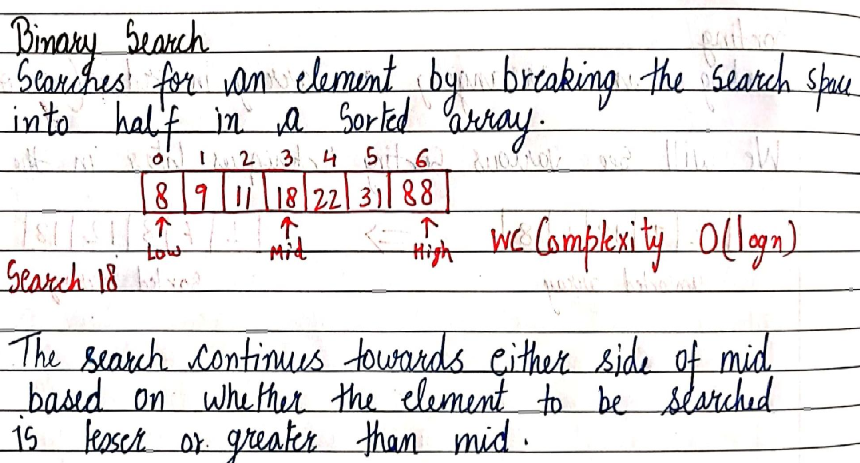 Binary Search
Searches for an element by breaking the search space
into half in a Sorted array.
0 1 2 3 4 5 6
8 9 11 18 22 31 88
Low Mid High
WC Complexity O(logn)
Search 18
The search continues towards either side of mid
based on whether the element to be searched
is lesser or greater than mid.